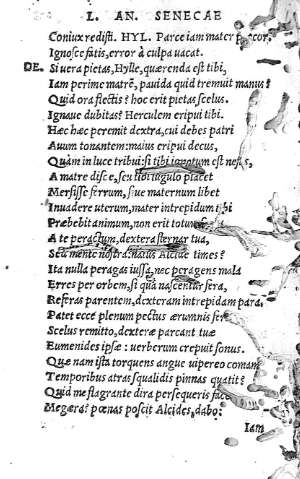 L. AN. SENECAE
Coniux redisti. HYL. Parce iam mater precor.
Ignosce fatis, error à culpa vacat.
DE. Si vera pietas, Hylle, quærenda est tibi,
Iam perime matrē, pavida quid tremuit manus?
Quid ora flectis? hoc erit pietas scelus.
Ignave dubitas? Herculem eripui tibi.
Hæc hæc peremit dextra, cui debes patri
Avum tonantem: maius eripui decus,
Quàm in luce tribui: si tibi ignotum est nefas,
A matre disce, seu tibi iugulo placet
Mersisse ferrum, siue maternum libet
Inuadere uterum, mater intrepidum tibi
Præbebit animum, non erit totum
A te peractum, dextera sternar tua,
Sed mente nostra: natus Alcidæ times?
Ita nulla peragas iussa, nec peragens mala
Erres per orbem, si qua nascetur fera,
Referas parentem, dexteram intrepidam para.
Patet ecce plenum pectus ærumnis feri
Scelus remitto, dexteræ parcant tuæ
Eumenides ipsæ: uerberum crepuit sonus.
Quæ nam ista torquens angue uipereo comam
Temporibus atras squalidis pinnas quatit?
Quid me flagrante dira persequeris face
Megæra? pœnas poscit Alcides, dabo:
Iam